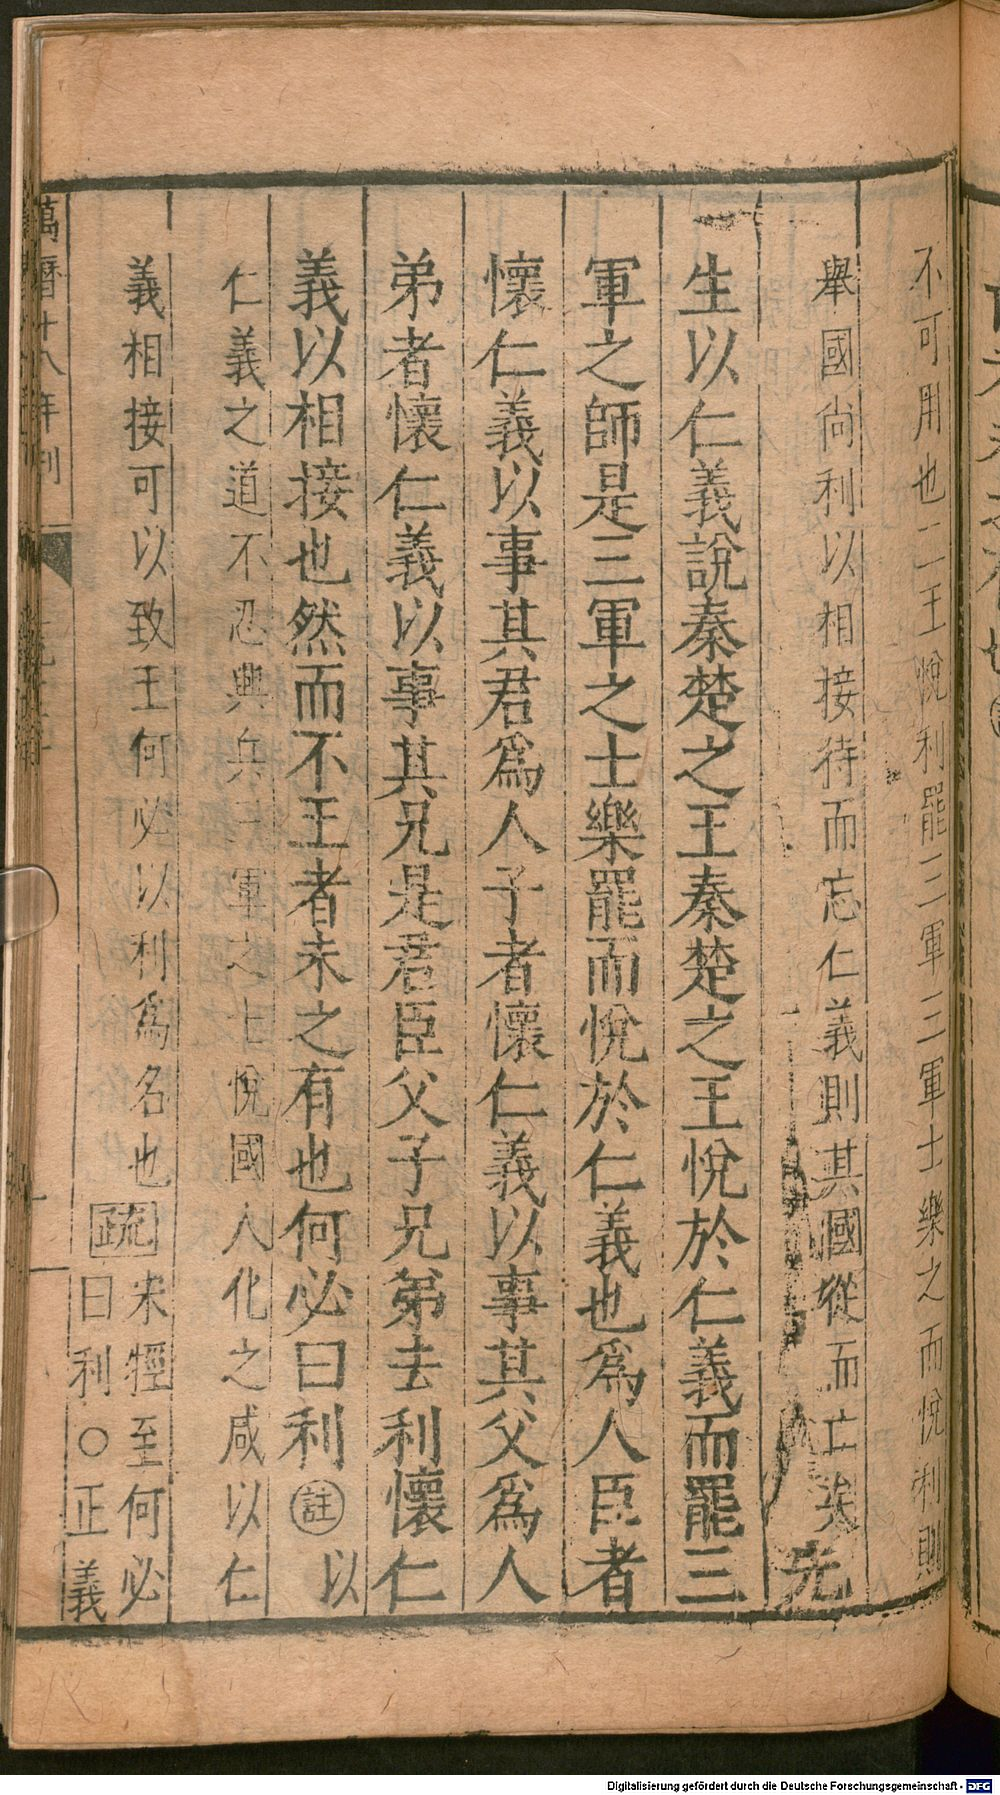 不可用也二王悅利罷三軍三軍士樂之而悅利則
舉國尚利以相接待而忘仁義則其國從而亡矣先
生以仁義說秦楚之王秦楚之王悅於仁義而罷三
軍之師是三軍之士樂罷而悅於仁義也爲人臣者
懷仁義以事其君爲人子者懷仁義以事其父爲人
弟者懷仁義以事其兄是君臣父子兄弟去利懷仁
義以相接也然而不王者未之有也何必曰利註以
仁義之道不忍興兵三軍之士悅國人化之咸以仁
義相接可以致王何必以利爲名也疏宋牼至何必
曰利○正義
萬曆十八年刊
Digitalisierung gefördert durch die Deutsche Forschungsgemeinschaft - DFG